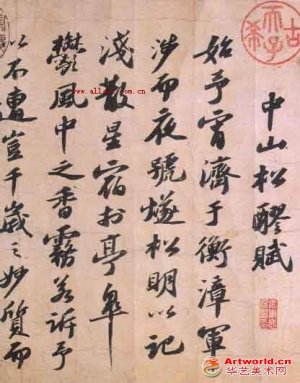 中山松醪賦
始予宵濟于衡漳軍
涉而夜號燧松明以記
淺散星宿於亭皋
鬱風中之香霧若訴予
以不遭豈千歲之妙質而
古希天子
Artworld.cn
华艺美术网